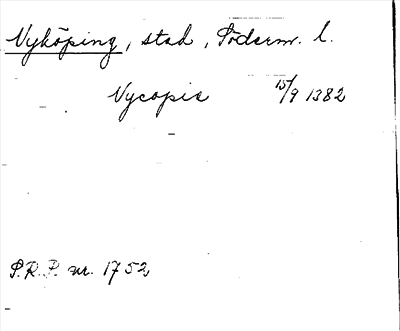 Nyköping, stad, Söderm. l.
Nycopie 15/9 1382
S.R.P. nr. 1752